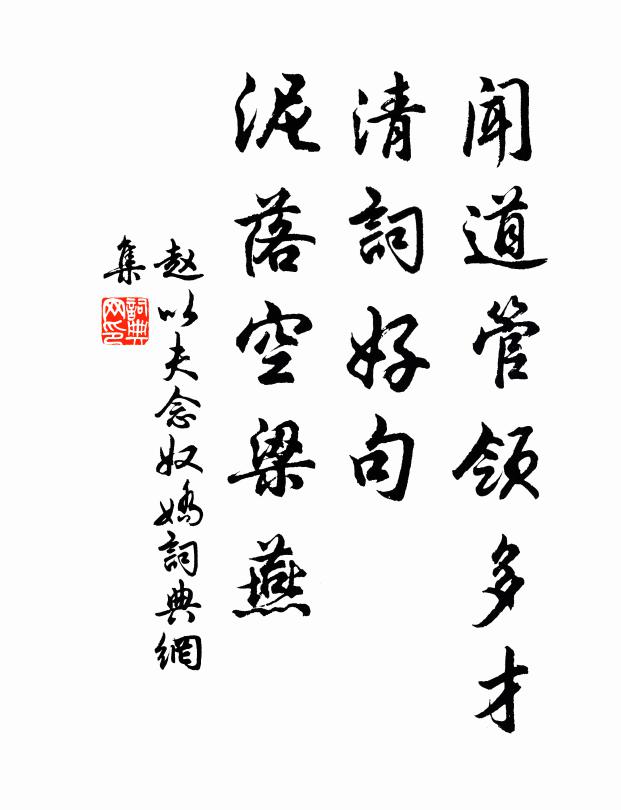 闻道管领多才
清詞好句
泥落空梁燕
赵以夫念奴嬌詞典網
集
詞典
网印